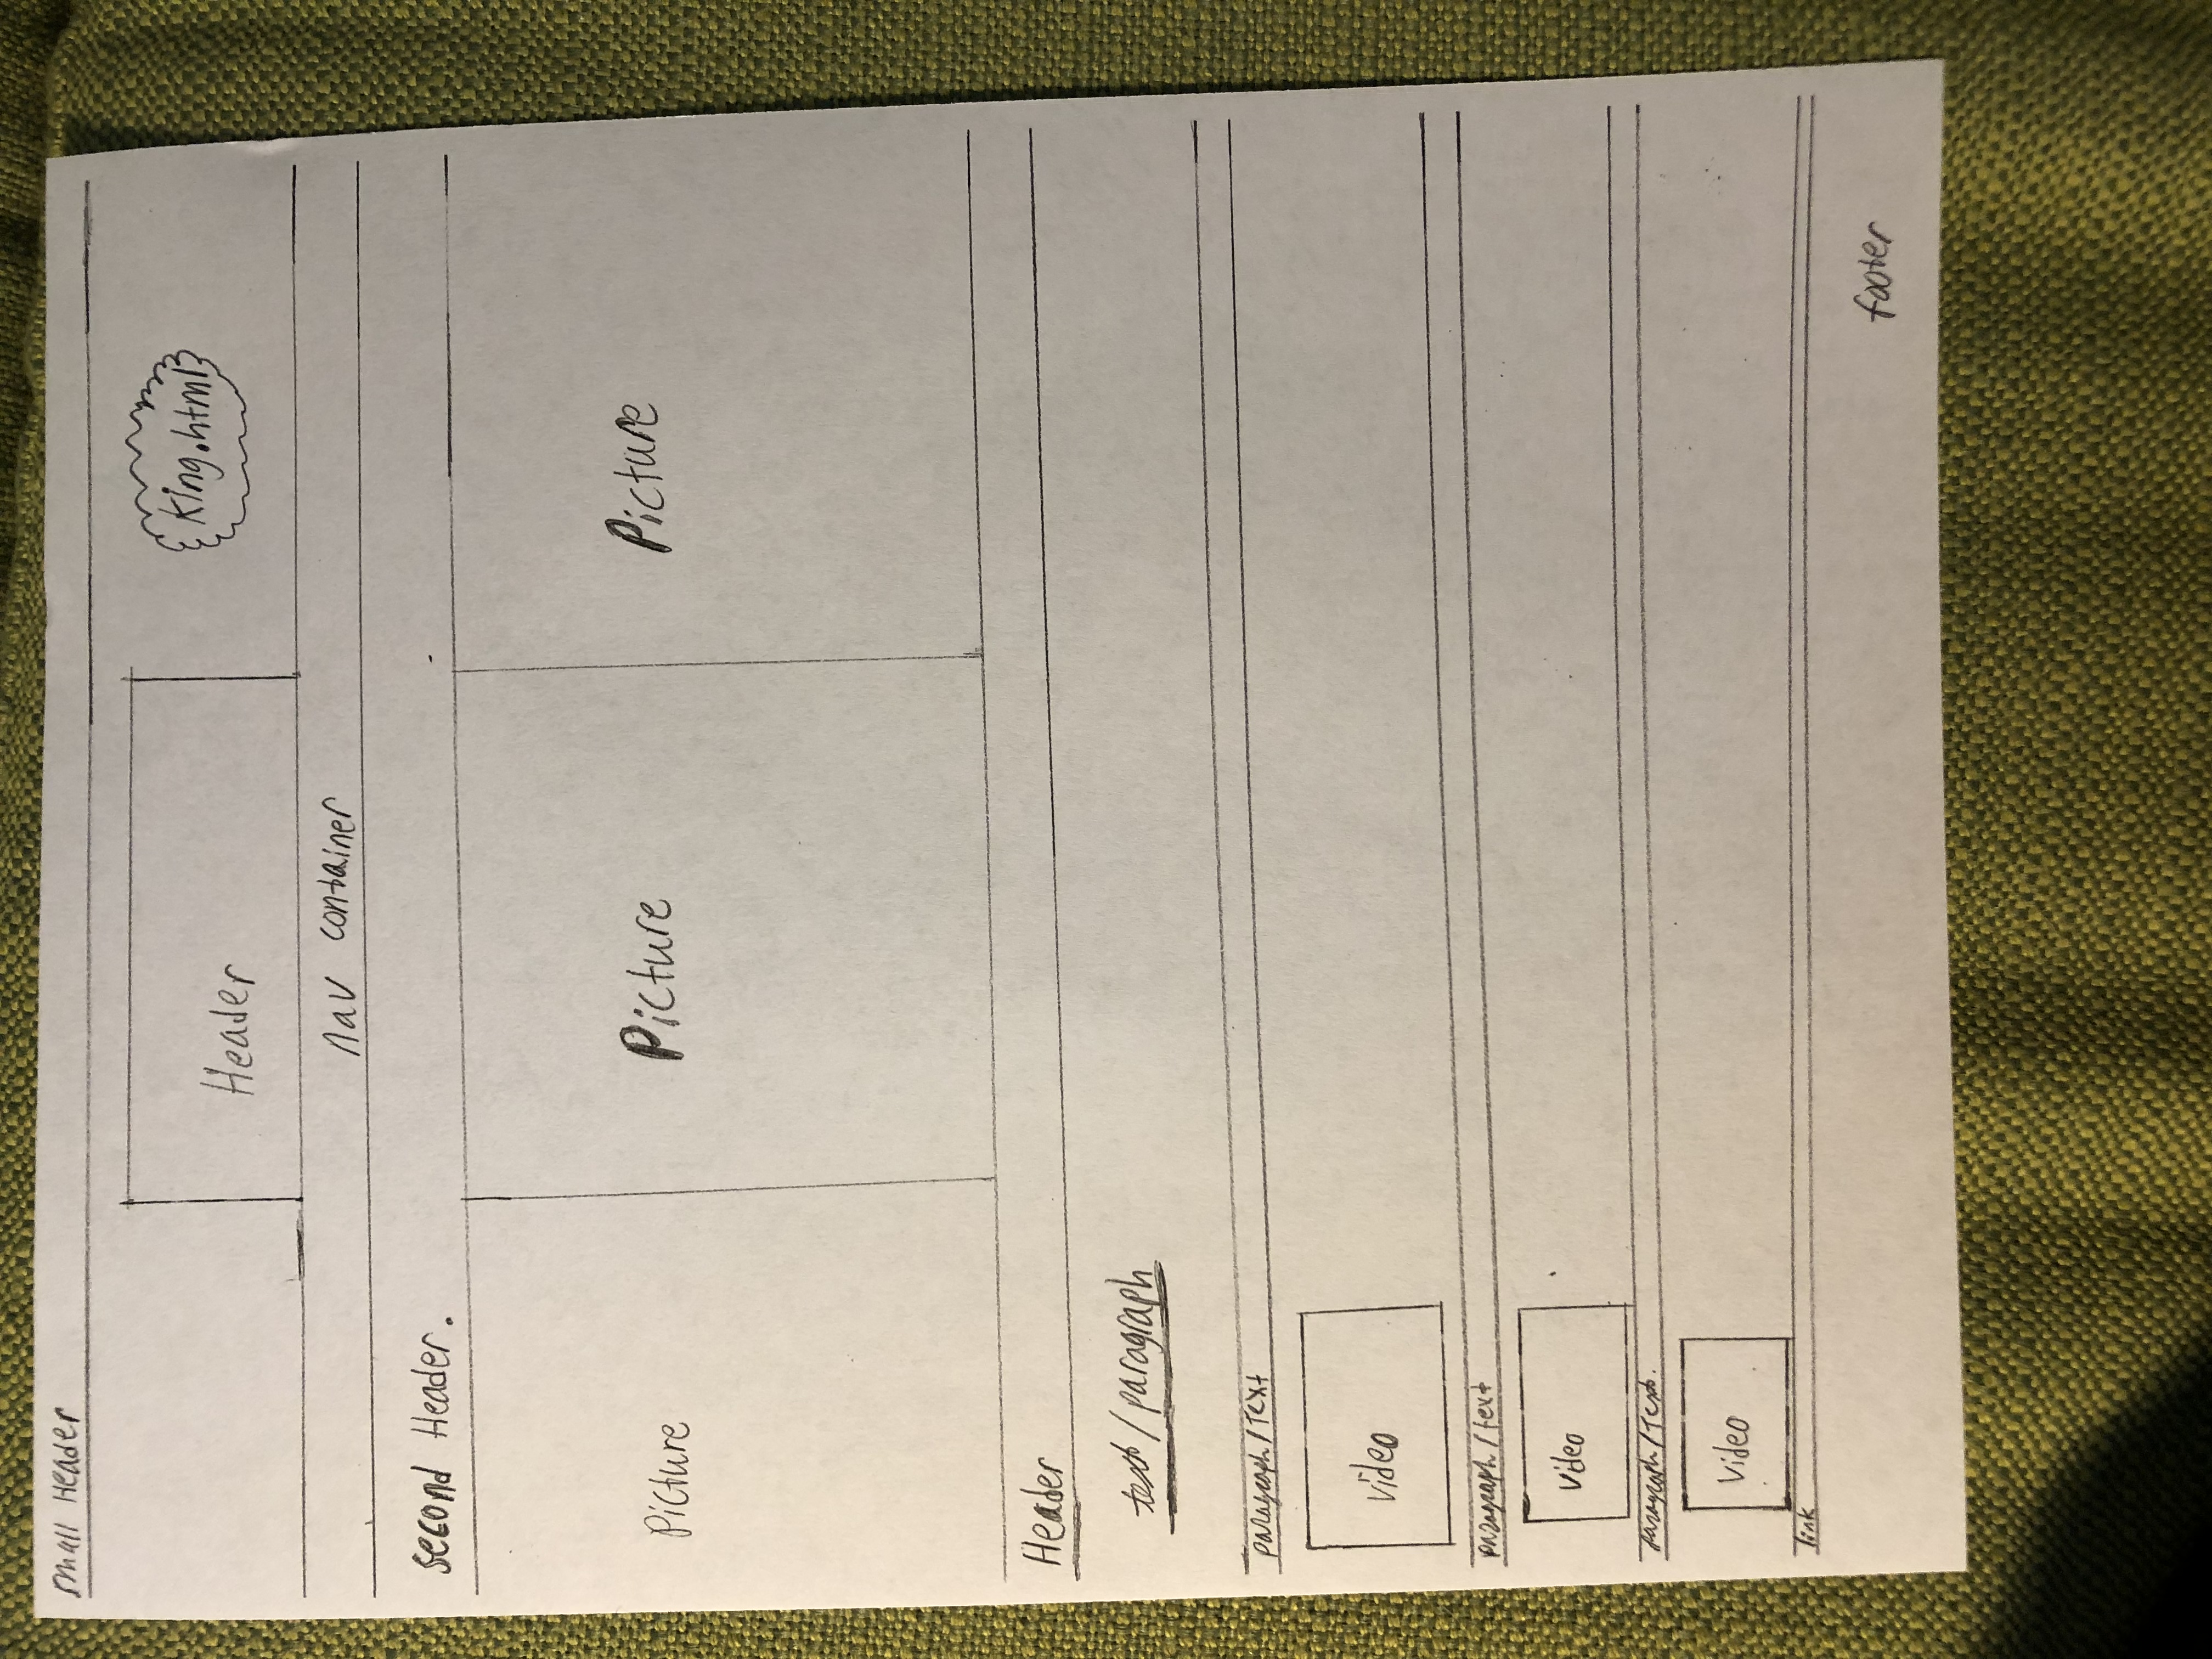 small Header
Header
King.html
nav container
second Header.
Picture
Picture
Picture
Header
text/paragraph
paragraph/Text
video
paragraph/text
video
paragraph/Text.
video
link
footer